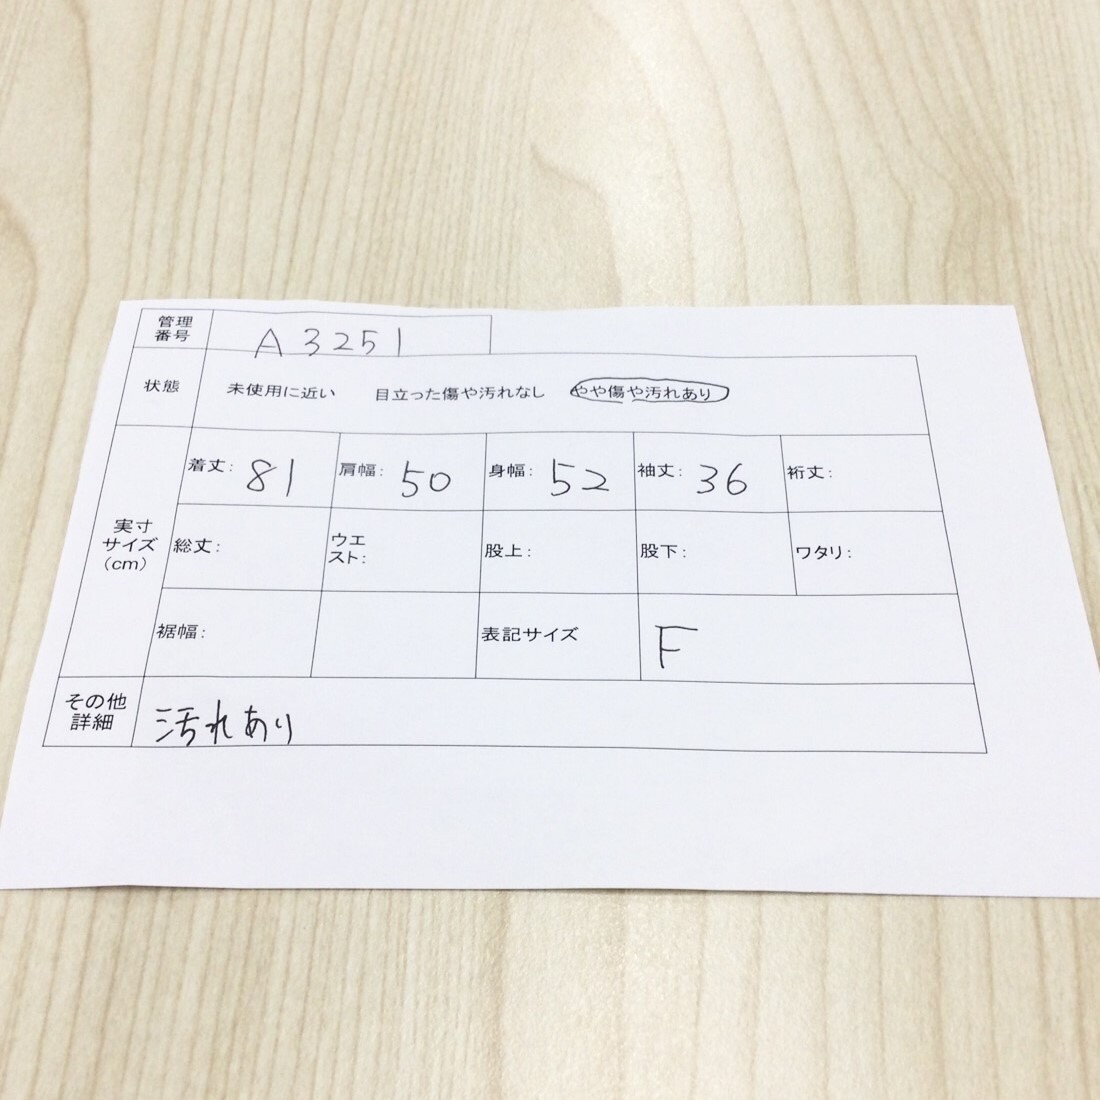 管理
番号 A3251
状態 未使用に近い 目立った傷や汚れなし やや傷や汚れあり
着丈: 81 肩幅: 50 身幅: 52 袖丈: 36 裄丈:
実寸
サイズ
(cm)
総丈: ウエ
スト: 股上: 股下: ワタリ:
裾幅: 表記サイズ F
その他
詳細 汚れあり